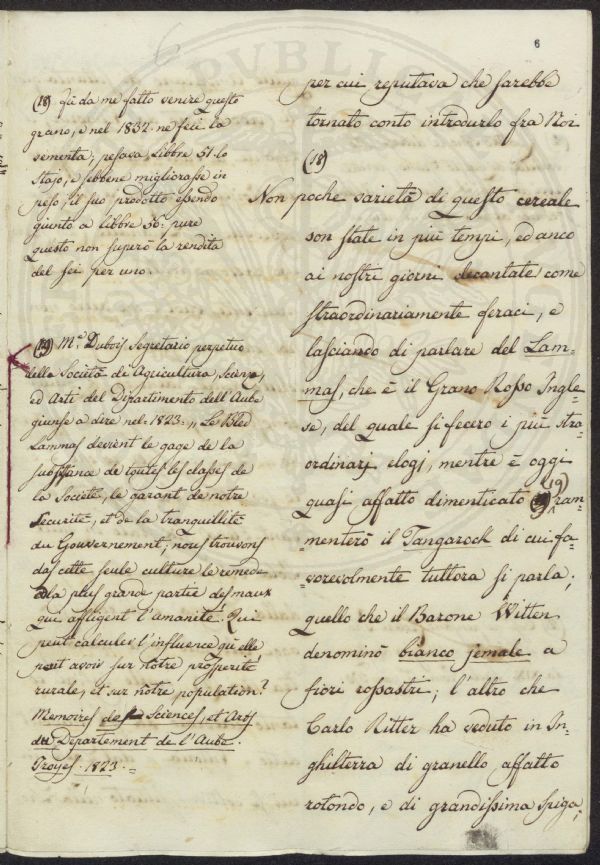 6
per cui reputava che sarebbe
tornato conto introdurlo fra Noi
(18)
Non poche varietà di questo cereale
son state in più tempi, ed anco
ai nostri giorni decantate come
straordinariamente feraci, e
lasciando di parlare del Lam=
mas, che è il Grano Rosso Ingle=
se, del quale si fecero i più stra=
ordinarj elogj, mentre è oggi
quasi affatto dimenticato (19) ram=
menterò il Tangarock di cui fa=
vorevolmente tuttora si parla;
quello che il Barone Witten
denominò bianco jemale a
fiori rossastri; l'altro che
Carlo Ritter ha veduto in In=
ghilterra di granello affatto
rotondo, e di grandissima spiga;
(18) Fù da me fatto venire questo
grano, e nel 1832. ne feci la
sementa; pesava Libbre 51. lo
stajo, e sebbene migliorasse in
peso il suo prodotto essendo
giunto a libbre 56. pure
questo non superò la rendita
del sei per uno.
(19) Mr. Dubois Segretario perpetuo
della Società di Agricoltura, Scienze,
ed Arti del Dipartimento dell'Aube
giunse a dire nel 1823. „ Le Bled
Lammas devient le gage de la
subsistance de toutes les classes de
la Societé, le garant de notre
securité, et de la tranquillité
du Gouvernement; nous trouvons
das cette seule culture le remede
a la plus grande partie des maux
que affligent l'umanité. Qui
peut calculer l'influence qu'elle
peut avoir sur nôtre prosperité
rurale, et sur nôtre population?
Memoires des Sciences, et Arts
du Departement de l'Aube.
Troyes. 1823. =